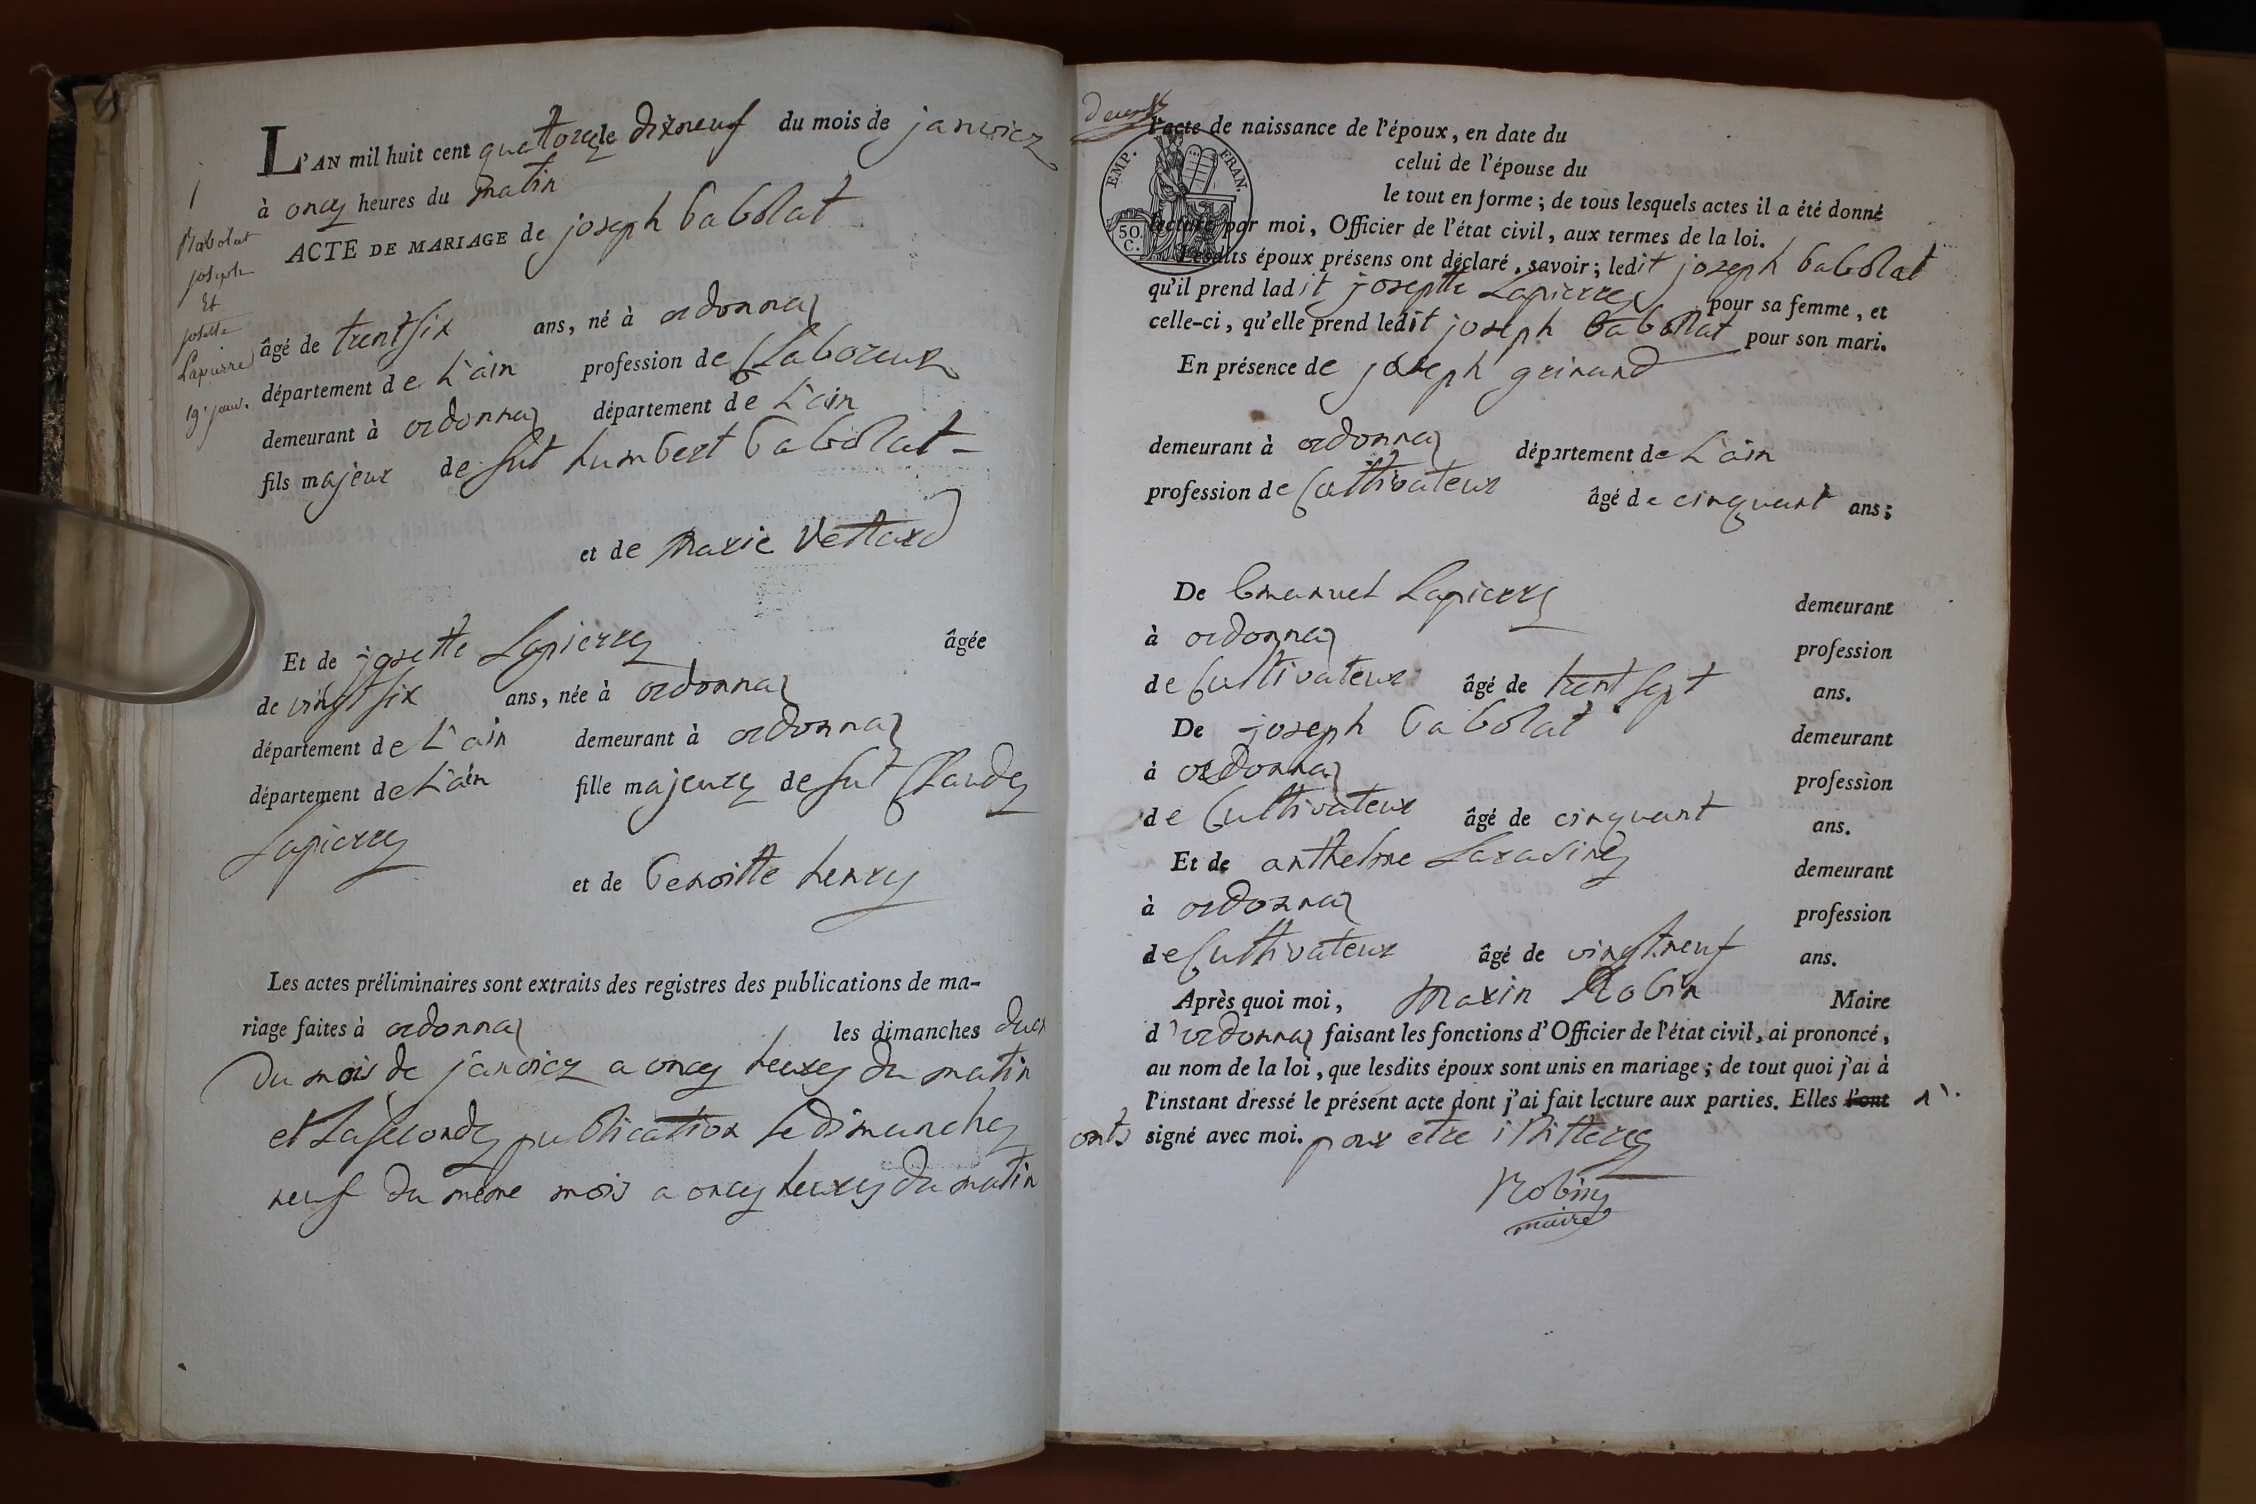 1
Babolat
joseph
Et
josette
Lapierre
19 janv.
L'AN mil huit cent quattorze le dixneuf du mois de janvier
à oncy heures du matin
ACTE DE MARIAGE de joseph babolat
âgé de trentsix ans, né à ordonnaz
département de L'ain profession de Laboreur
demeurant à ordonnaz département de L'ain
fils majeur de fut humbert babolat
et de marie Vettard
Et de josette Lapierre âgée
de vingt six ans, née à ordonnaz
département de L'ain demeurant à ordonnaz
département de L'ain fille majeure de fut Claude
Lapierre
et de benoitte henry
Les actes préliminaires sont extraits des registres des publications de ma-
riage faites à ordonnaz les dimanches deux
Du mois de janvier a oncy heures du matin
et La seconde publication le dimanche
neuf du meme mois a oncy heures du matin
l'acte de naissance de l'époux, en date du
celui de l'épouse du
le tout en forme ; de tous lesquels actes il a été donné
lecture par moi, Officier de l'état civil, aux termes de la loi.
Lesdits époux présens ont déclaré, savoir ; ledit joseph babolat
qu'il prend ladit josephtte Lapierre pour sa femme, et
celle-ci, qu'elle prend ledit joseph babolat pour son mari.
EMP. FRAN.
50.
C.
En présence de joseph grinand
demeurant à ordonnaz département de L'ain
profession de Culttivateur âgé de cinquant ans ;
De Emanuel Lapierre demeurant
à ordonnaz profession
de Culttivateur âgé de trent sept ans.
De joseph babolat demeurant
à ordonnaz profession
de Culttivateur âgé de cinquant ans.
Et de anthelme Sarasin demeurant
à ordonnaz profession
de Culttivateur âgé de vingt neuf ans.
Après quoi moi, Marin Robin Maire
d'ordonnaz faisant les fonctions d'Officier de l'état civil, ai prononcé,
au nom de la loi, que lesdits époux sont unis en mariage ; de tout quoi j'ai à
l'instant dressé le présent acte dont j'ai fait lecture aux parties. Elles l'ont n'
onts signé avec moi. pour etre illittere
Robin
maire